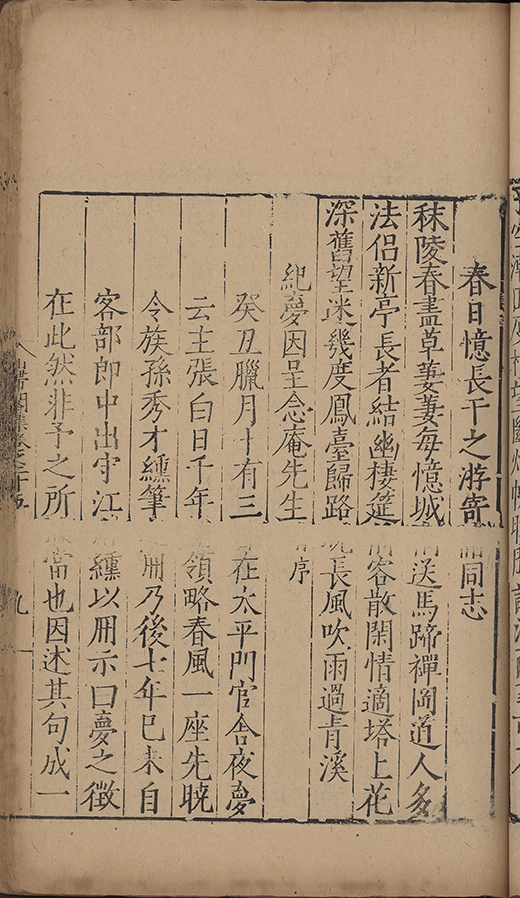 春日憶長干之游寄同志
秣陵春盡草萋萋每憶城送馬蹄禪岡道人多
法侶新亭長者結幽棲筵客散閑情適塔上花
深舊望迷幾度鳳臺歸路長風吹雨過青溪
紀夢因呈念庵先生序
癸丑臘月十有三在太平門官舍夜夢
云主張白日千年領略春風一座先曉
令族孫秀才纁筆冊乃後七年已未自
客部郎中出守江纁以冊示曰夢之徵
在此然非予之所當也因述其句成一
卷之十五 九